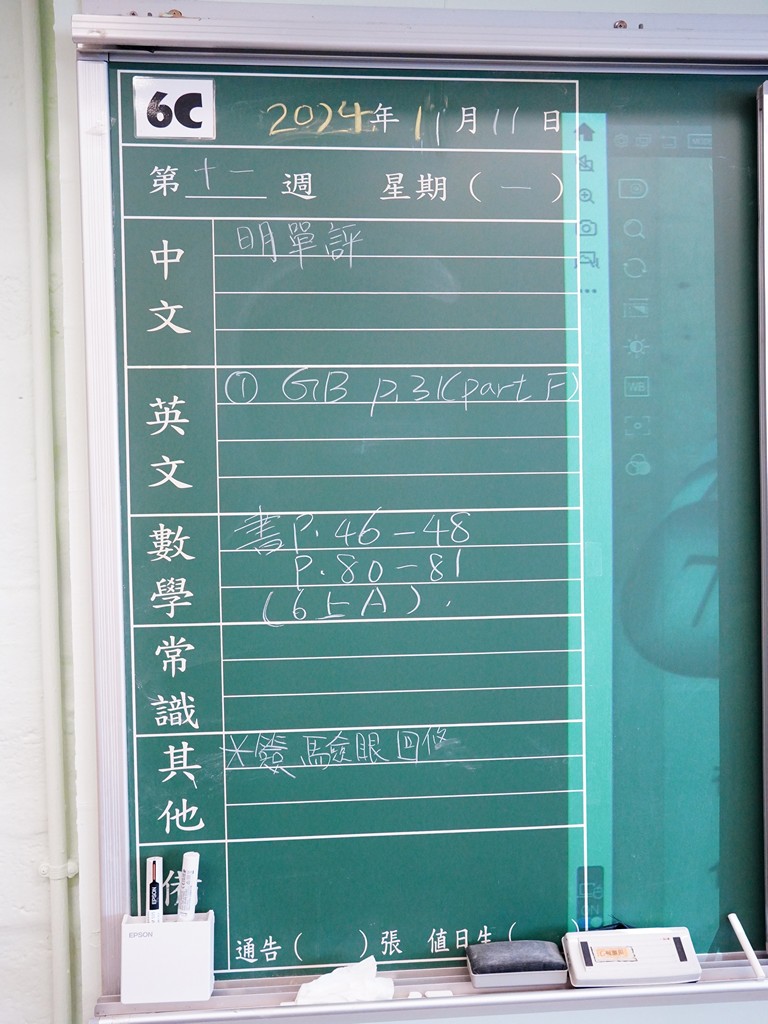 6C 2024年 11月 11日
第 十一 週 星期 ( 一 )
中文 明單評
英文 ① GB p.31(part F)
數學 書P.46-48
P.80-81
(6上A).
常識
其他 *簽驗眼回條
備
通告( )張 值日生(
EPSON
EPSON
ON
WB